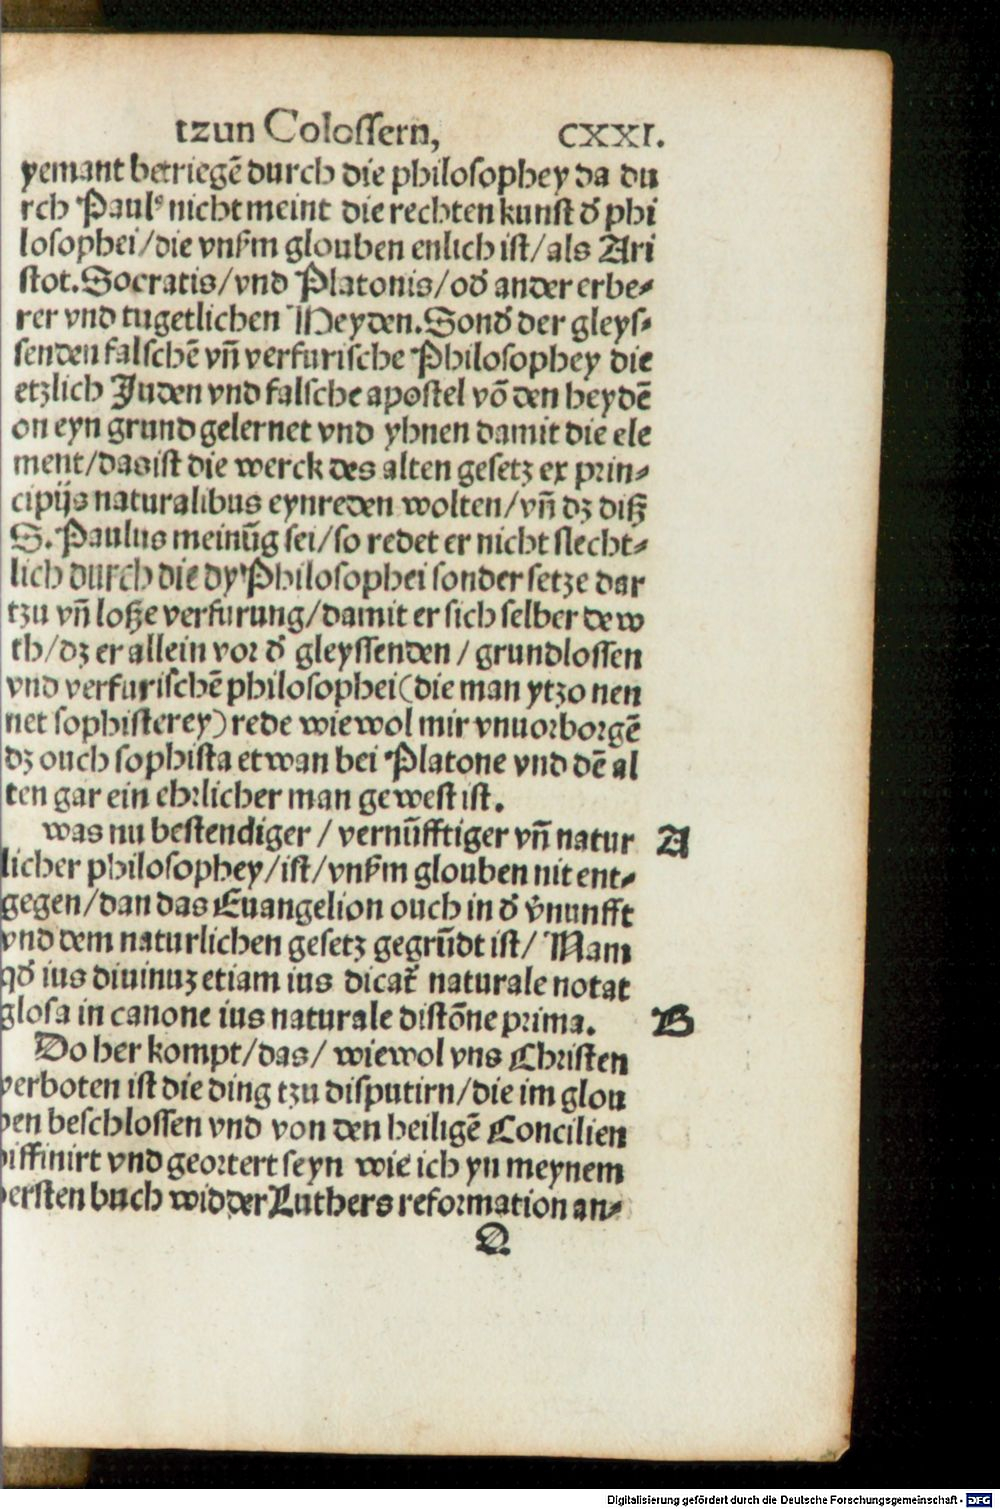 tzun Colossern, CXXI.
yemant betriegē durch die philosophey da du
rch Paulꝰ nicht meint die rechten kunst đ phi
losophei/die vnſm glouben enlich ist/als Ari
stot.Socratis/vnd Platonis/ođ ander erbe⸗
rer vnd tugetlichen Heyden.Sonđ der gleys⸗
senden falschē vñ verfurische Philosophey die
etzlich Juden vnd falsche apostel vō den heydē
on eyn grund gelernet vnd yhnen damit die ele
ment/das ist die werck des alten gesetz ex prin⸗
cipijs naturalibus eynreden wolten/vñ dz diß
S.Paulus meinūg sei/so redet er nicht slecht⸗
lich durch die dy Philosophei sonder setze dar
tzu vñ loße verfurung/damit er sich selber dew
th/dz er allein vor đ gleyssenden/grundlossen
vnd verfurischē philosophei(die man ytzo nen
net sophisterey)rede wiewol mir vnuorborgē
dz ouch sophista etwan bei Platone vnd dē al
ten gar ein ehrlicher man gewest ist.
was nu bestendiger/vernūfftiger vñ natur A
licher philosophey/ist/vnſm glouben nit ent⸗
gegen/dan das Euangelion ouch in đ v̄nunfft
vnd dem naturlichen gesetz gegrūdt ist/Nam
qđ ius diuinuz etiam ius dicat᷑ naturale notat
glosa in canone ius naturale distōne prima. B
Do her kompt/das/wiewol vns Christen
verboten ist die ding tzu disputirn/die im glou
ben beschlossen vnd von den heiligē Concilien
diffinirt vnd geortert seyn wie ich yn meynem
ersten buch widder Luthers reformation an⸗
Q
Digitalisierung gefördert durch die Deutsche Forschungsgemeinschaft - DFG